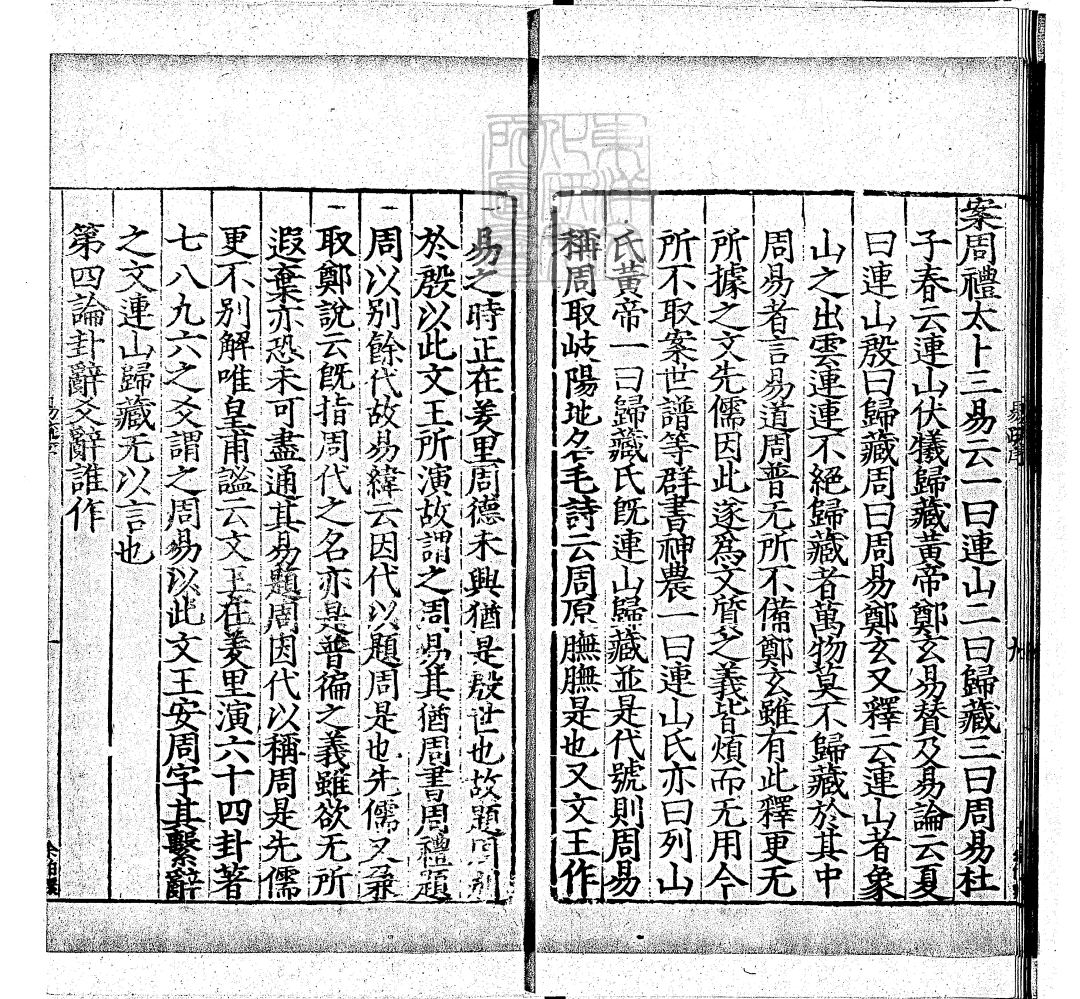 案周禮太卜三易云一曰連山二曰歸藏三曰周易杜
子春云連山伏犧歸藏黃帝鄭玄易贊及易論云夏
曰連山殷曰歸藏周曰周易鄭玄又釋云連山者象
山之出雲連連不絕歸藏者萬物莫不歸藏於其中
周易者言易道周普无所不備鄭玄雖有此釋更无
所據之文先儒因此遂爲文質之義皆煩而无用今
所不取案世譜等群書神農一曰連山氏亦曰列山
氏黃帝一曰歸藏氏旣連山歸藏並是代號則周易
稱周取岐陽地名毛詩云周原膴膴是也又文王作
易之時正在羑里周德未興猶是殷世也故題周別
於殷以此文王所演故謂之周易其猶周書周禮題
周以别餘代故易緯云因代以題周是也先儒又兼
取鄭說云旣指周代之名亦是普徧之義雖欲无所
遐棄亦恐未可盡通其易題周因代以稱周是先儒
更不别解唯皇甫謐云文王在羑里演六十四卦著
七八九六之爻謂之周易以此文王安周字其繫辭
之文連山歸藏无以言也
第四論卦辭爻辭誰作